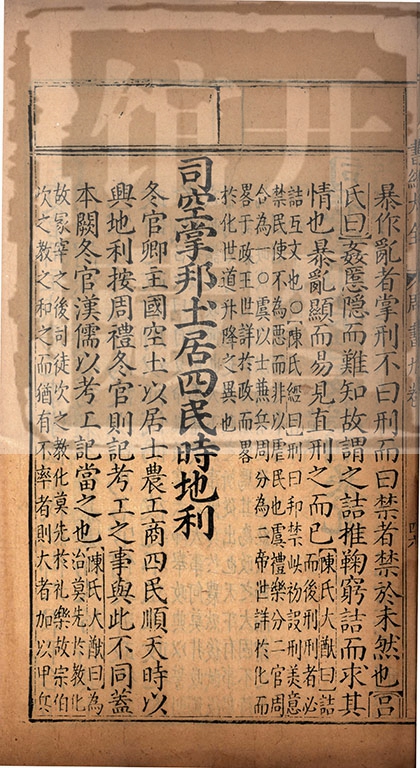 暴作亂者掌刑不曰刑而曰禁者禁於未然也呂
氏曰姦慝隱而難知故謂之詰推鞠窮詰而求其
情也暴亂顯而易見直刑之而已陳氏大猷曰詰
而後刑刑者必
詰互文也○陳氏經曰刑曰邦禁此初設刑美意
禁民使不為惡而非以虐民也虞禮樂分二官周
合為一○虞以士兼兵周分為二帝世詳於化而
畧於政王世詳於政而畧
於化世道升降之異也
司空掌邦土居四民時地利
冬官卿主國空土以居士農工商四民順天時以
興地利按周禮冬官則記考工之事與此不同蓋
本闕冬官漢儒以考工記當之也陳氏大猷曰為
治莫先於教化
故冢宰之後司徒次之教化莫先於禮樂故宗伯
次之教之和之而猶有不率者則大者加以甲兵